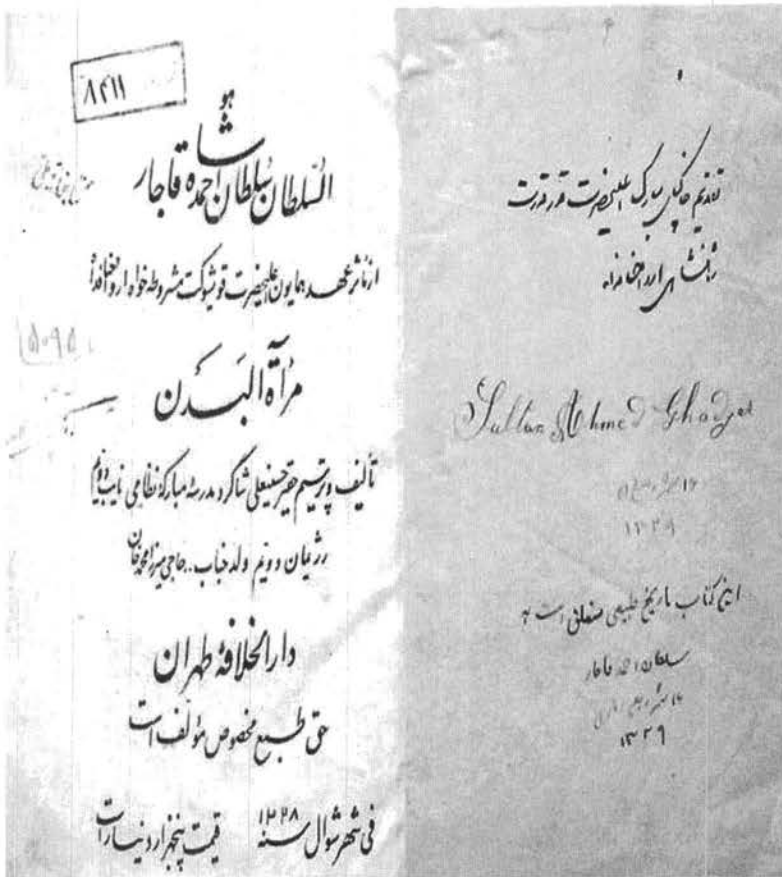 تقدیم خاکپای مبارک اعلیحضرت قدر قدرت
ارواحنا فداه
Sultan Ahmed Ghadjar
۱۶
۱۳۲۹
این کتاب تاریخ طبیعی است
سلطان احمد قاجار
۱۶ شهر ربیع
۱۳۲۹
۸۴۱۱
هو
السلطان سلطان احمد شاه قاجار
از مآثر عهد همایون اعلیحضرت قویشوکت مشروطه خواه ارواحنا فداه
۵۰۹۵
مرآة البدن
تألیف و ترسیم حقیر حسینعلی شاگرد مدرسهٔ مبارکهٔ نظامی نایب دویم
رژیمان دویم ولد جناب حاجی میرزا محمد خان
دار الخلافهٔ طهران
حق طبع مخصوص مؤلف است
فی شهر شوال سنه ۱۳۲۸ قیمت پنجهزار دینار است